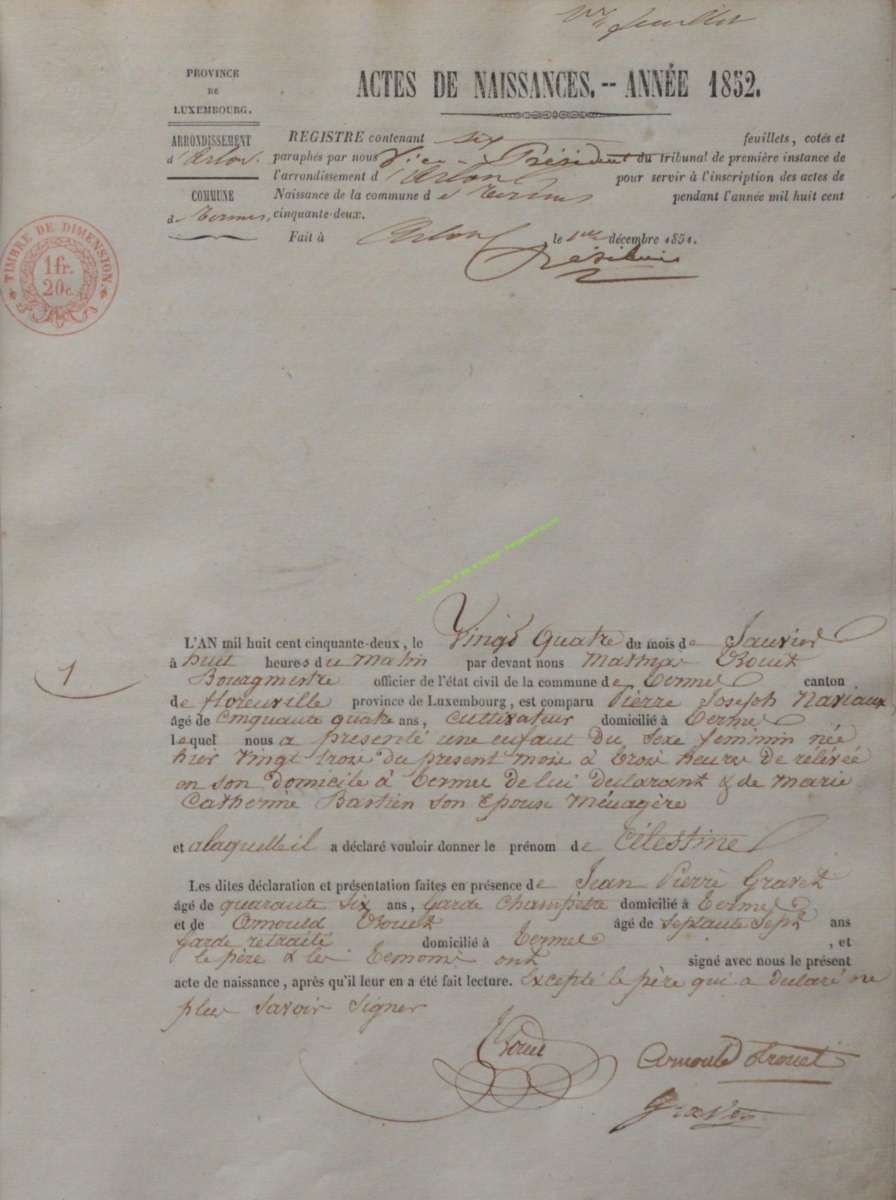 1re feuillet
PROVINCE
DE
LUXEMBOURG.
ACTES DE NAISSANCES. -- ANNÉE 1852.
ARRONDISSEMENT
d'Arlon.
COMMUNE
de Termes,
REGISTRE contenant six feuillets, cotés et
paraphés par nous Vice-Président du tribunal de première instance de
l'arrondissement d'Arlon pour servir à l'inscription des actes de
Naissance de la commune de Termes pendant l'année mil huit cent
cinquante-deux.
Fait à Arlon, le 1er décembre 1851.
TIMBRE DE DIMENSION.
1fr.
20c.
1
L'AN mil huit cent cinquante-deux, le Vingt quatre du mois de Janvier
à huit heures du Matin par devant nous Mathieu
Bourgmestre officier de l'état civil de la commune de Termes canton
de florenville province de Luxembourg, est comparu Pierre Joseph Naviaux
âgé de Cinquante quatre ans, Cultivateur domicilié à Termes
Lequel nous a présenté une enfant du sexe feminin née
hier Vingt trois du present mois à trois heures de relévée
en son domicile à Termes de lui declarant & de Marie
Catherine Bastien son Epouse Ménagère
et a laquelle il a déclaré vouloir donner le prénom de Célestine
Les dites déclaration et présentation faites en présence de Jean Pierre Gravet
âgé de quarante six ans, garde Champêtre domicilié à Termes
et de Arnould Trouet âgé de septante sept ans
garde retraité domicilié à Termes, et
le père & les temoins ont signé avec nous le présent
acte de naissance, après qu'il leur en a été fait lecture. Excepté le père qui a declaré ne
plus savoir signer
Arnould Trouet
Gravet